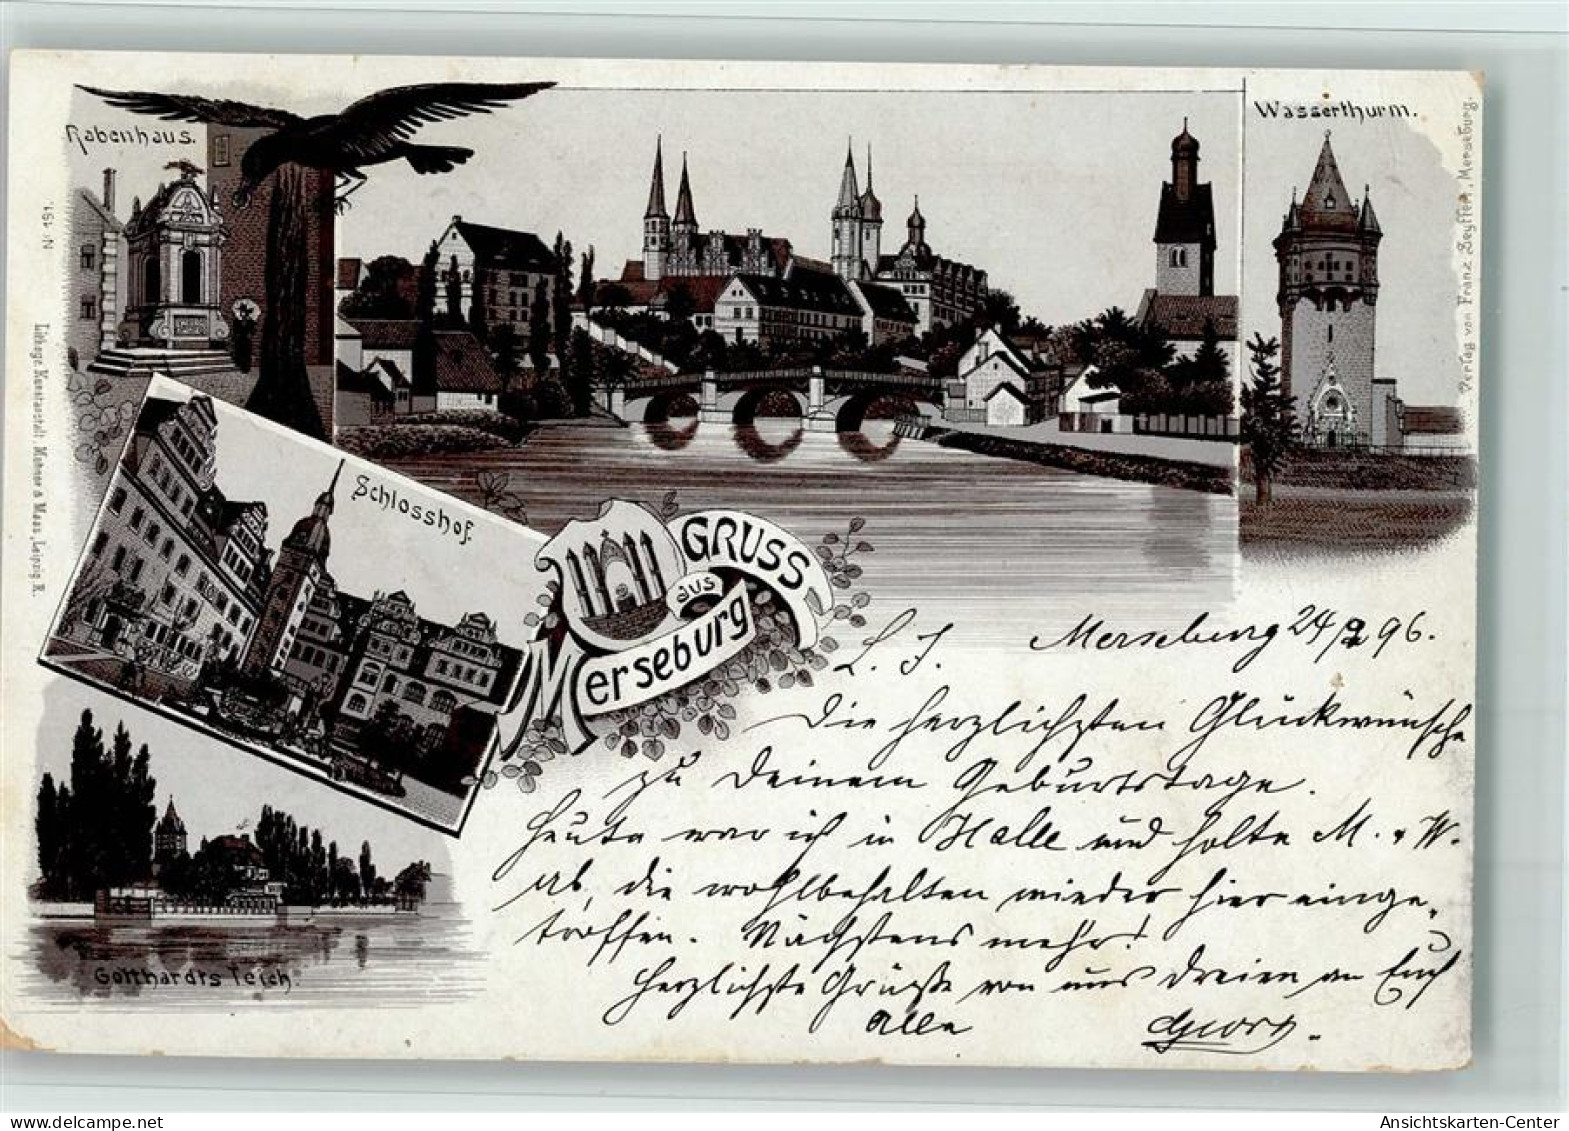 Rabenhaus.
Wasserthurm.
Verlag von Franz Seyffert, Merseburg.
N. 151.
Lithogr. Kunstanstalt Mehner & Maas, Leipzig R.
Schlosshof.
GRUSS
aus
Merseburg
Gotthardts Teich.
L. J. Merseburg 24/2 96.
Die herzlichsten Glückwünsche
zu Deinem Geburtstage.
Heute war ich in Halle und holte M. + W.
ab, die wohlbehalten wieder hier einge-
troffen. Nächstens mehr!
Herzlichste Grüße von uns Dreien an Euch
Alle Georg.
Ansichtskarten-Center